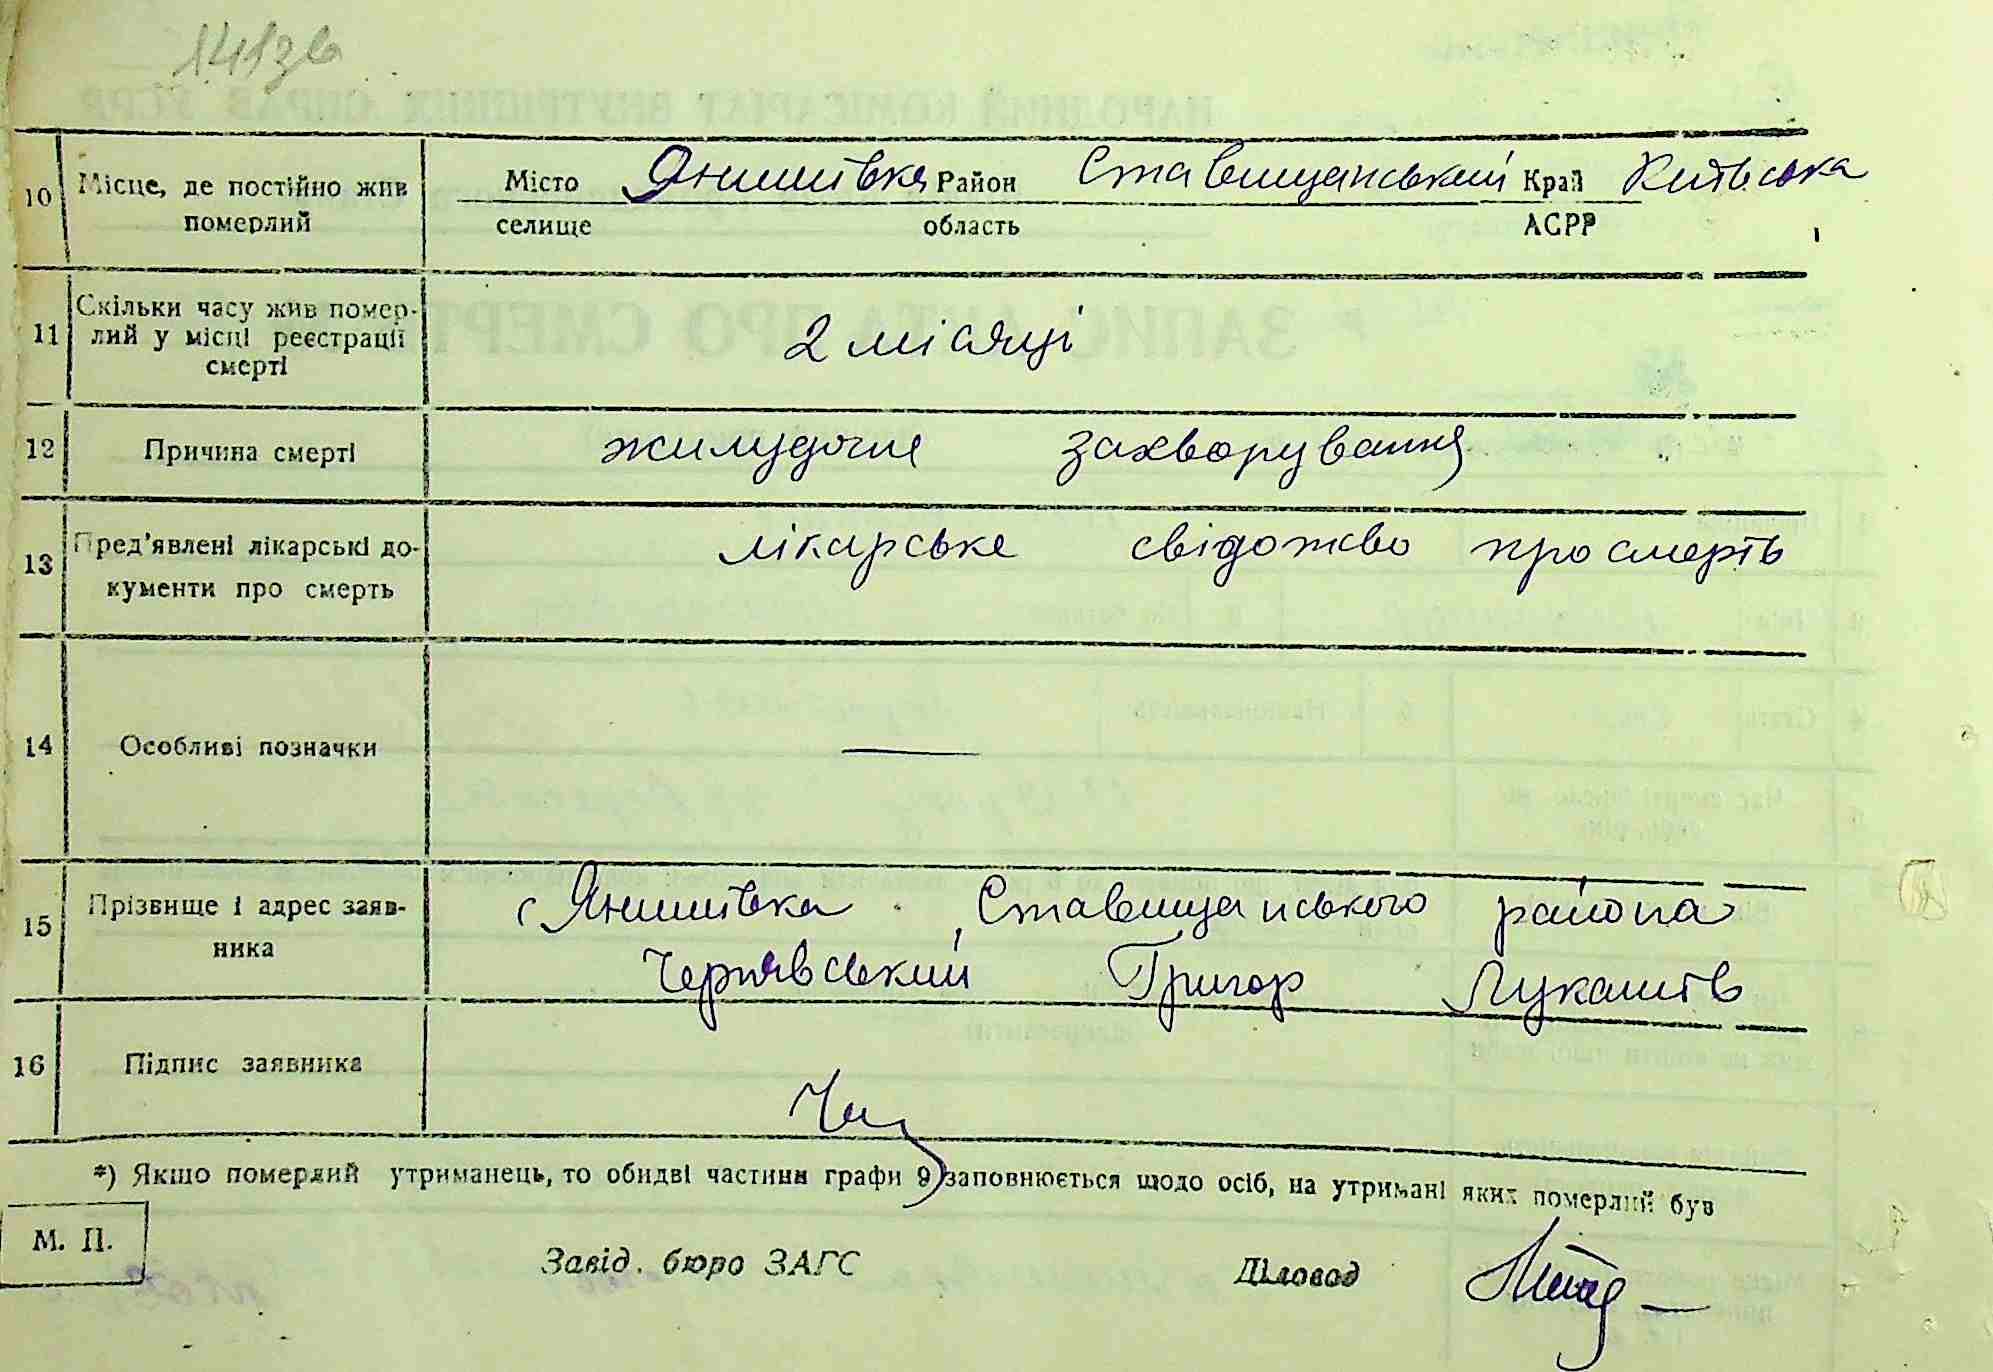 141зв
10 Місце, де постійно жив померлий Місто Янишівка Район Ставищанський Край Київська
селище область АСРР
11 Скільки часу жив помер-
лий у місці реєстрації
смерті
2 місяці
12 Причина смерті жилудочне захворування
13 Пред'явлені лікарські до-
кументи про смерть
лікарське свідоцтво про смерть
14 Особливі позначки —
15 Прізвище і адрес заяв-
ника
с Янишівка, Ставищанського района
Чернявський Григор Лукашів
16 Підпис заявника
*) Якщо померлий утриманець, то обидві частини графи 9 заповнюється щодо осіб, на утримані яких померлий був
М. П.
Завід. бюро ЗАГС Діловод